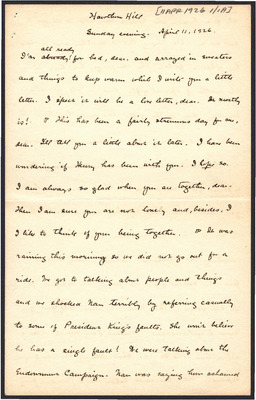 [HAPR 1926 1/11]
Hawthorn Hill
Sunday evening. April 11, 1926.
all ready
I'm already for bed, dear, and arrayed in sweaters
and things to keep warm while I write you a little
letter. I 'spect it will be a love letter, dear. It mostly
is! ¶ This has been a fairly strenuous day for me,
dear. I'll tell you a little about it later. I have been
wondering if Henry has been with you. I hope so.
I am always so glad when you are together, dear.
Then I am sure you are not lonely and, besides, I
I like to think of you being together. ¶ It was
raining this morning so we did not go out for a
ride. We got to talking about people and things
and we shocked Nan terribly by referring casually
to some of President King's faults. She won't believe
he has a single fault! We were talking about the
Endowment Campaign. Nan was saying how ashamed